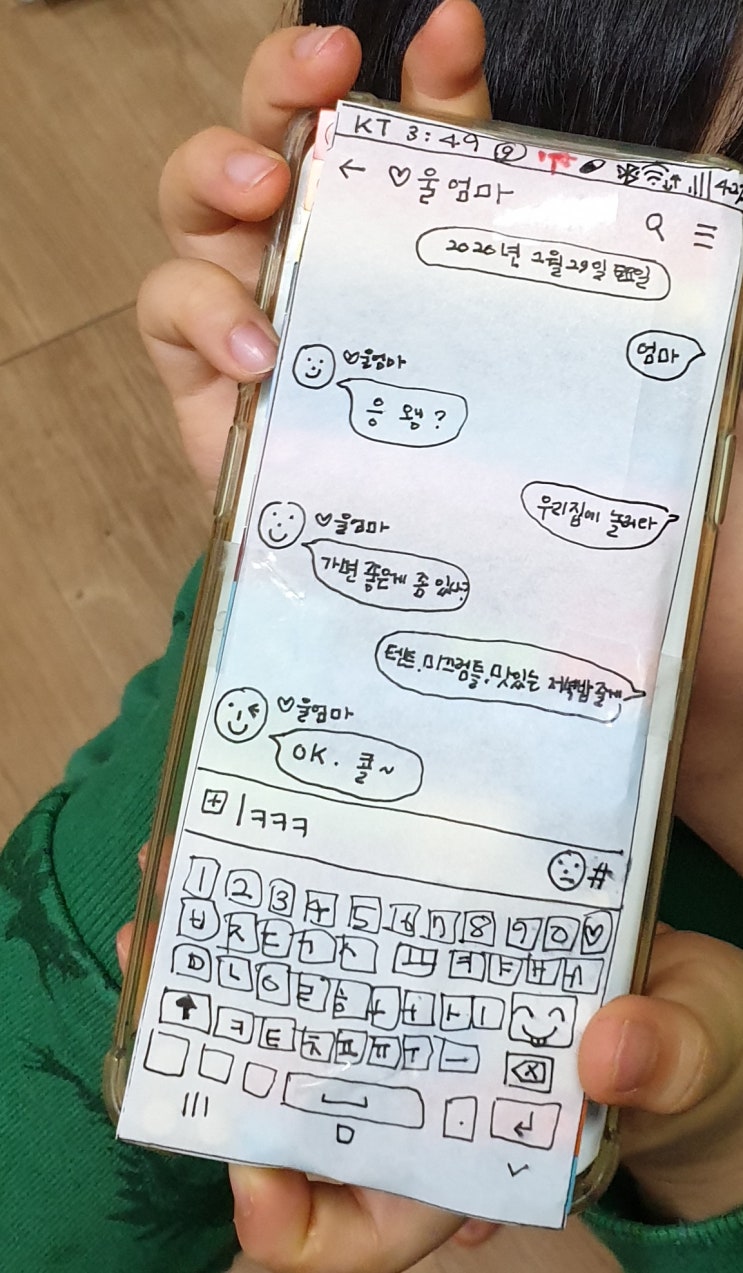 KT 3:49 42%
← ♡울엄마
2020년 2월 29일 토요일
엄마
♡울엄마
응 왱?
우리집에 놀러와
♡울엄마
가면 좋은게 좀 있냐?
텐트, 미끄럼틀, 맛있는 저녁밥줄게
♡울엄마
OK. 콜~
ㅋㅋㅋ
#
1 2 3 4 5 6 7 8 9 0 ♡